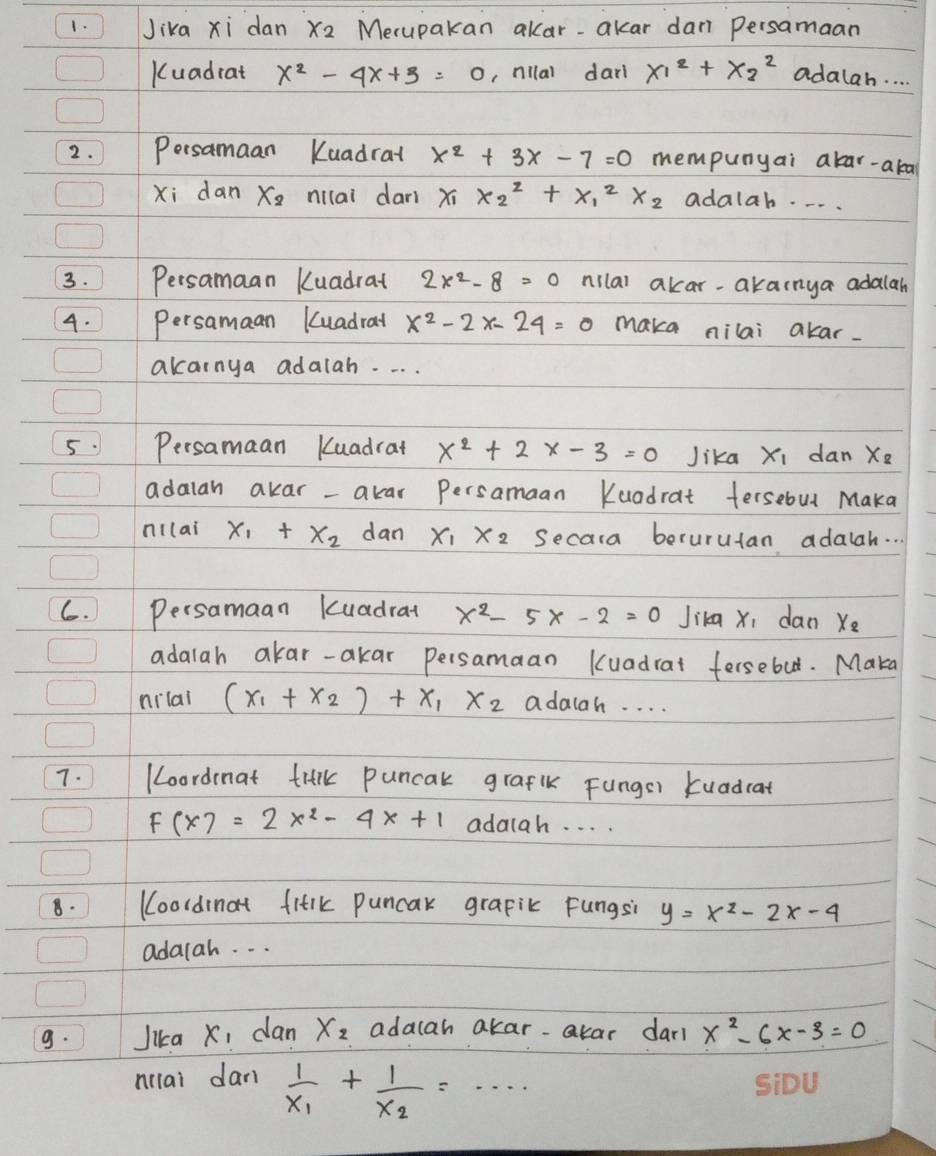 1. Jika xi dan x2 Merupakan akar-akar dari Persamaan
Kuadrat x² - 4x + 3 = 0, nilai dari x1² + x2² adalah....
2. Persamaan Kuadrat x² + 3x - 7 = 0 mempunyai akar-aka
xi dan x2 nilai dari xi x2² + x1² x2 adalah....
3. Persamaan Kuadrat 2x² - 8 = 0 nilai akar-akarnya adalah
4. Persamaan Kuadrat x² - 2x - 24 = 0 maka nilai akar-
akarnya adalah....
5. Persamaan Kuadrat x² + 2x - 3 = 0 Jika x1 dan x2
adalah akar-akar Persamaan Kuadrat tersebut Maka
nilai x1 + x2 dan x1 x2 secara berurutan adalah...
6. Persamaan Kuadrat x² - 5x - 2 = 0 Jika x1 dan x2
adalah akar-akar Persamaan Kuadrat tersebut. Maka
nilai (x1 + x2) + x1 x2 adalah....
7. Koordinat titik Puncak grafik Fungsi Kuadrat
F(x) = 2x² - 4x + 1 adalah....
8. Koordinat titik Puncak grafik Fungsi y = x² - 2x - 4
adalah...
9. Jika x1 dan x2 adalah akar-akar dari x² - 6x - 3 = 0
nilai dari 1/x1 + 1/x2 = ....
SiDU